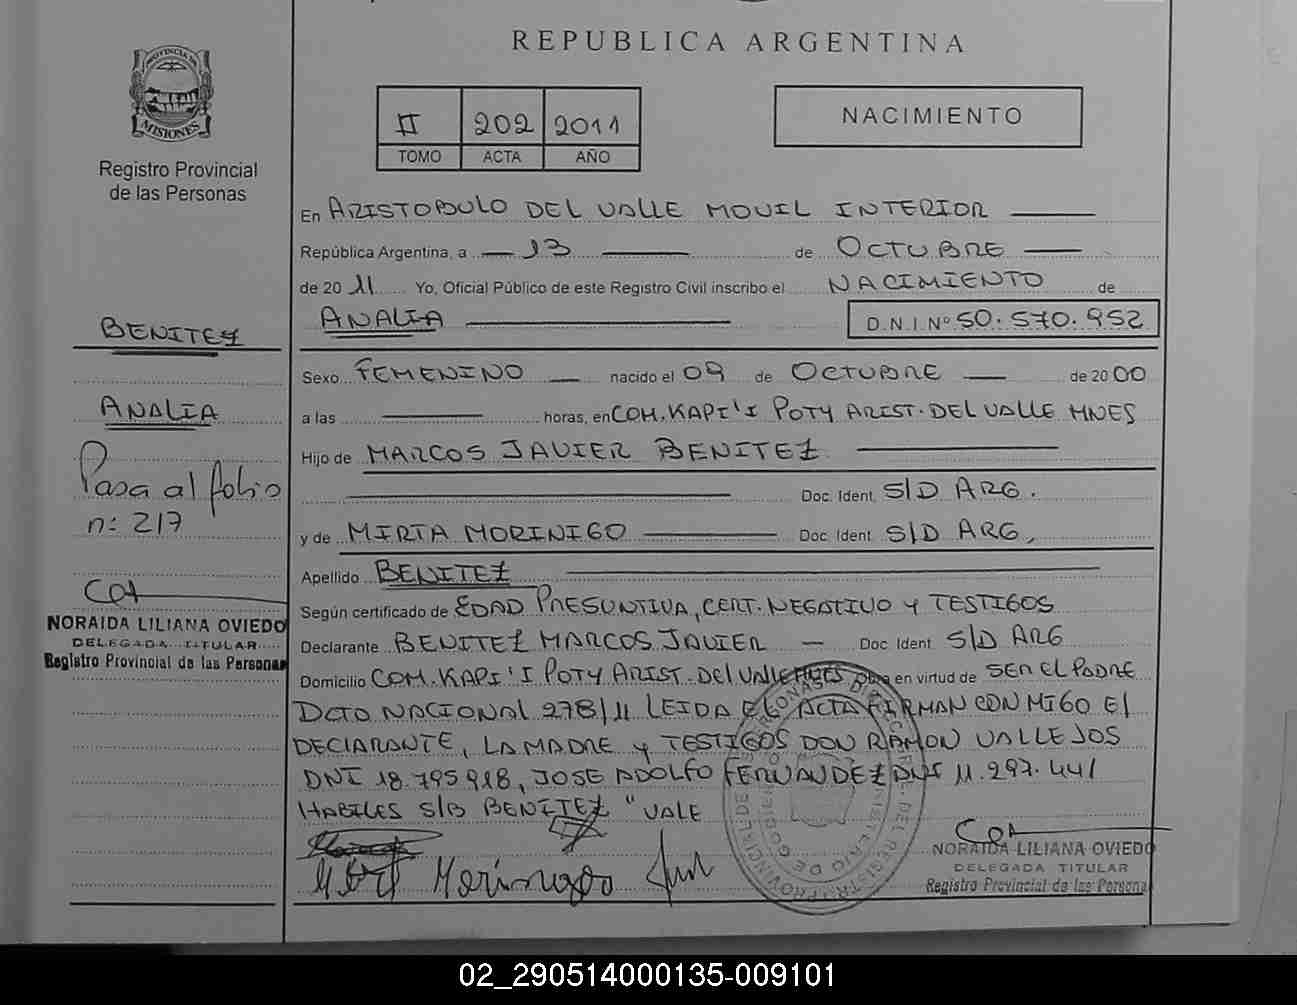 REPUBLICA ARGENTINA
PROVINCIA DE
MISIONES
Registro Provincial
de las Personas
II 202 2011
TOMO ACTA AÑO
NACIMIENTO
En ARISTOBULO DEL VALLE MOVIL INTERIOR
República Argentina, a 13 de OCTUBRE
de 20 11 Yo, Oficial Público de este Registro Civil inscribo el NACIMIENTO de
ANALIA D.N.I. Nº 50.570.952
Sexo FEMENINO nacido el 09 de OCTUBRE de 20 00
a las horas, en COM. KAPI'I POTY ARIST. DEL VALLE MNES
Hijo de MARCOS JAVIER BENITEZ
Doc. Ident. S/D ARG.
y de MIRTA MORINIGO Doc. Ident. S/D ARG,
Apellido BENITEZ
Según certificado de EDAD PRESUNTIVA, CERT. NEGATIVO Y TESTIGOS
Declarante BENITEZ MARCOS JAVIER Doc. Ident S/D ARG
Domicilio COM. KAPI'I POTY ARIST. DEL VALLE MNES obra en virtud de SER EL PADRE
DCTO NACIONAL 278/11 LEIDA EL ACTA FIRMAN CONMIGO El
DECLARANTE, LA MADRE y TESTIGOS DON RAMON VALLEJOS
DNI 18.795.918, JOSE ADOLFO FERNANDEZ DNI 11.297.441
HABILES S/B BENITEZ "VALE
Morinigo
NORAIDA LILIANA OVIEDO
DELEGADA TITULAR
Registro Provincial de las Persona
BENITEZ
ANALIA
Pasa al folio
n: 217
NORAIDA LILIANA OVIEDO
DELEGADA TITULAR
Registro Provincial de las Personas
02_290514000135-009101